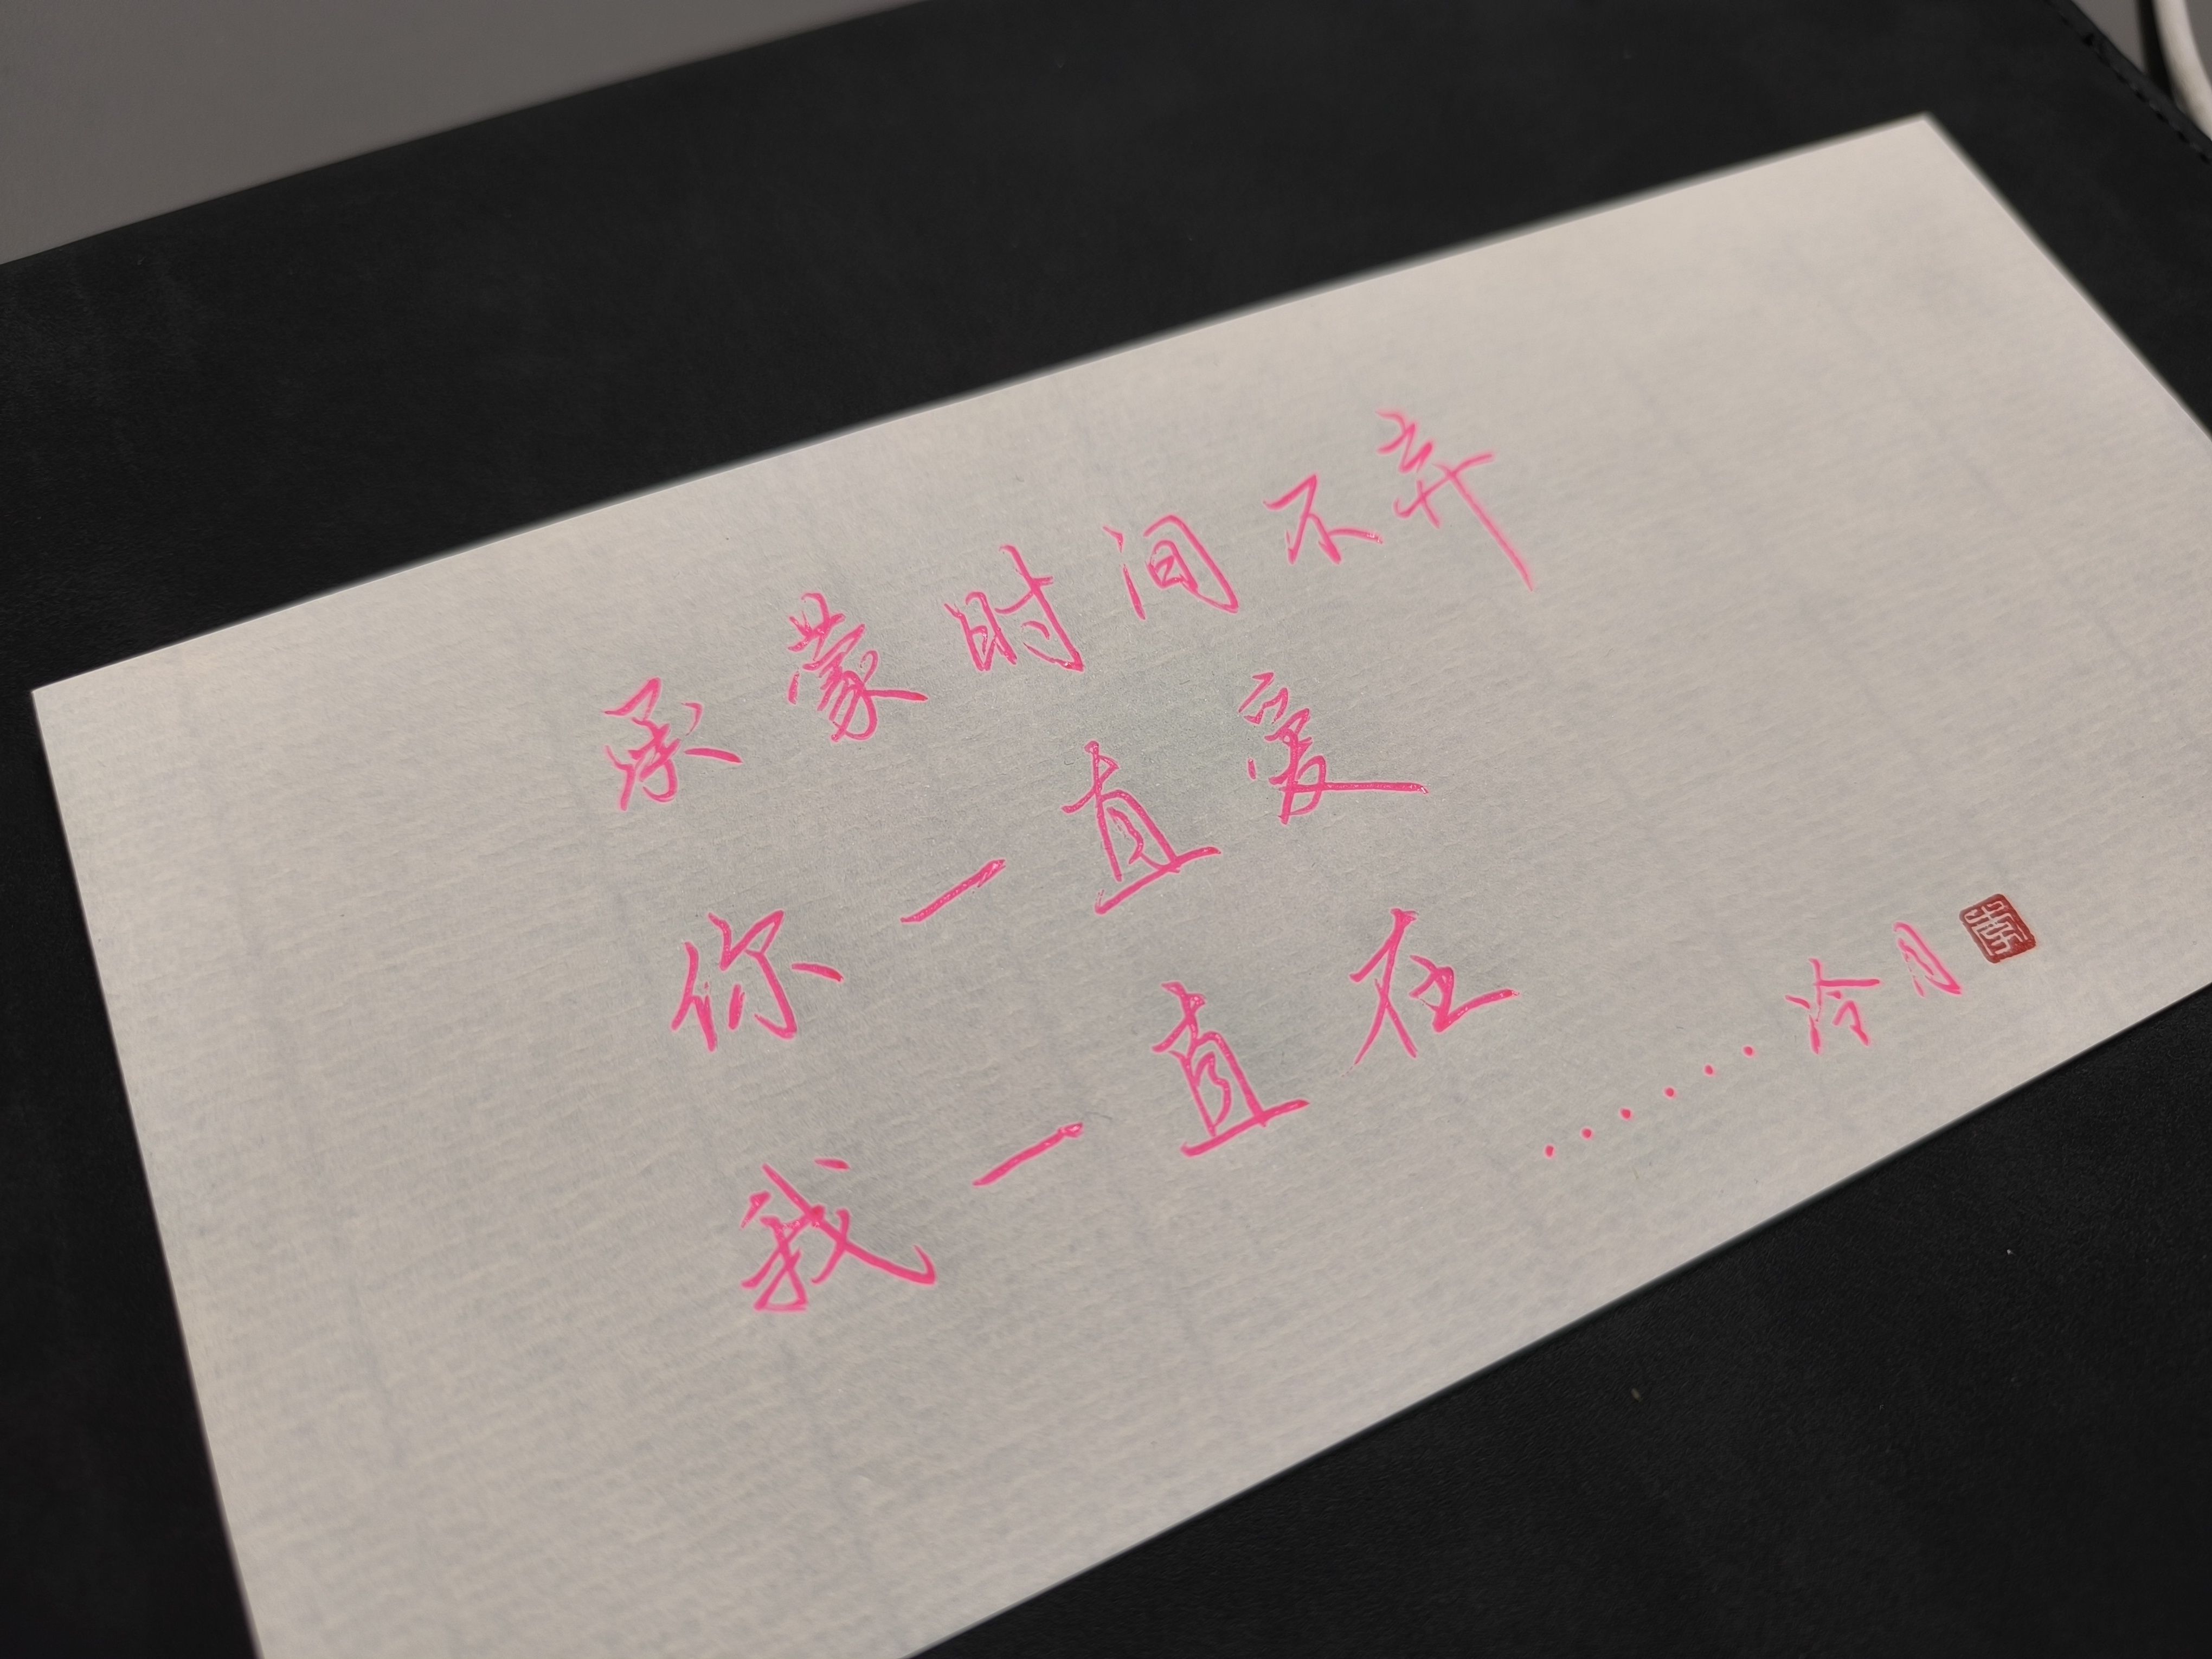 承蒙时间不弃
你一直爱
我一直在
......冷月